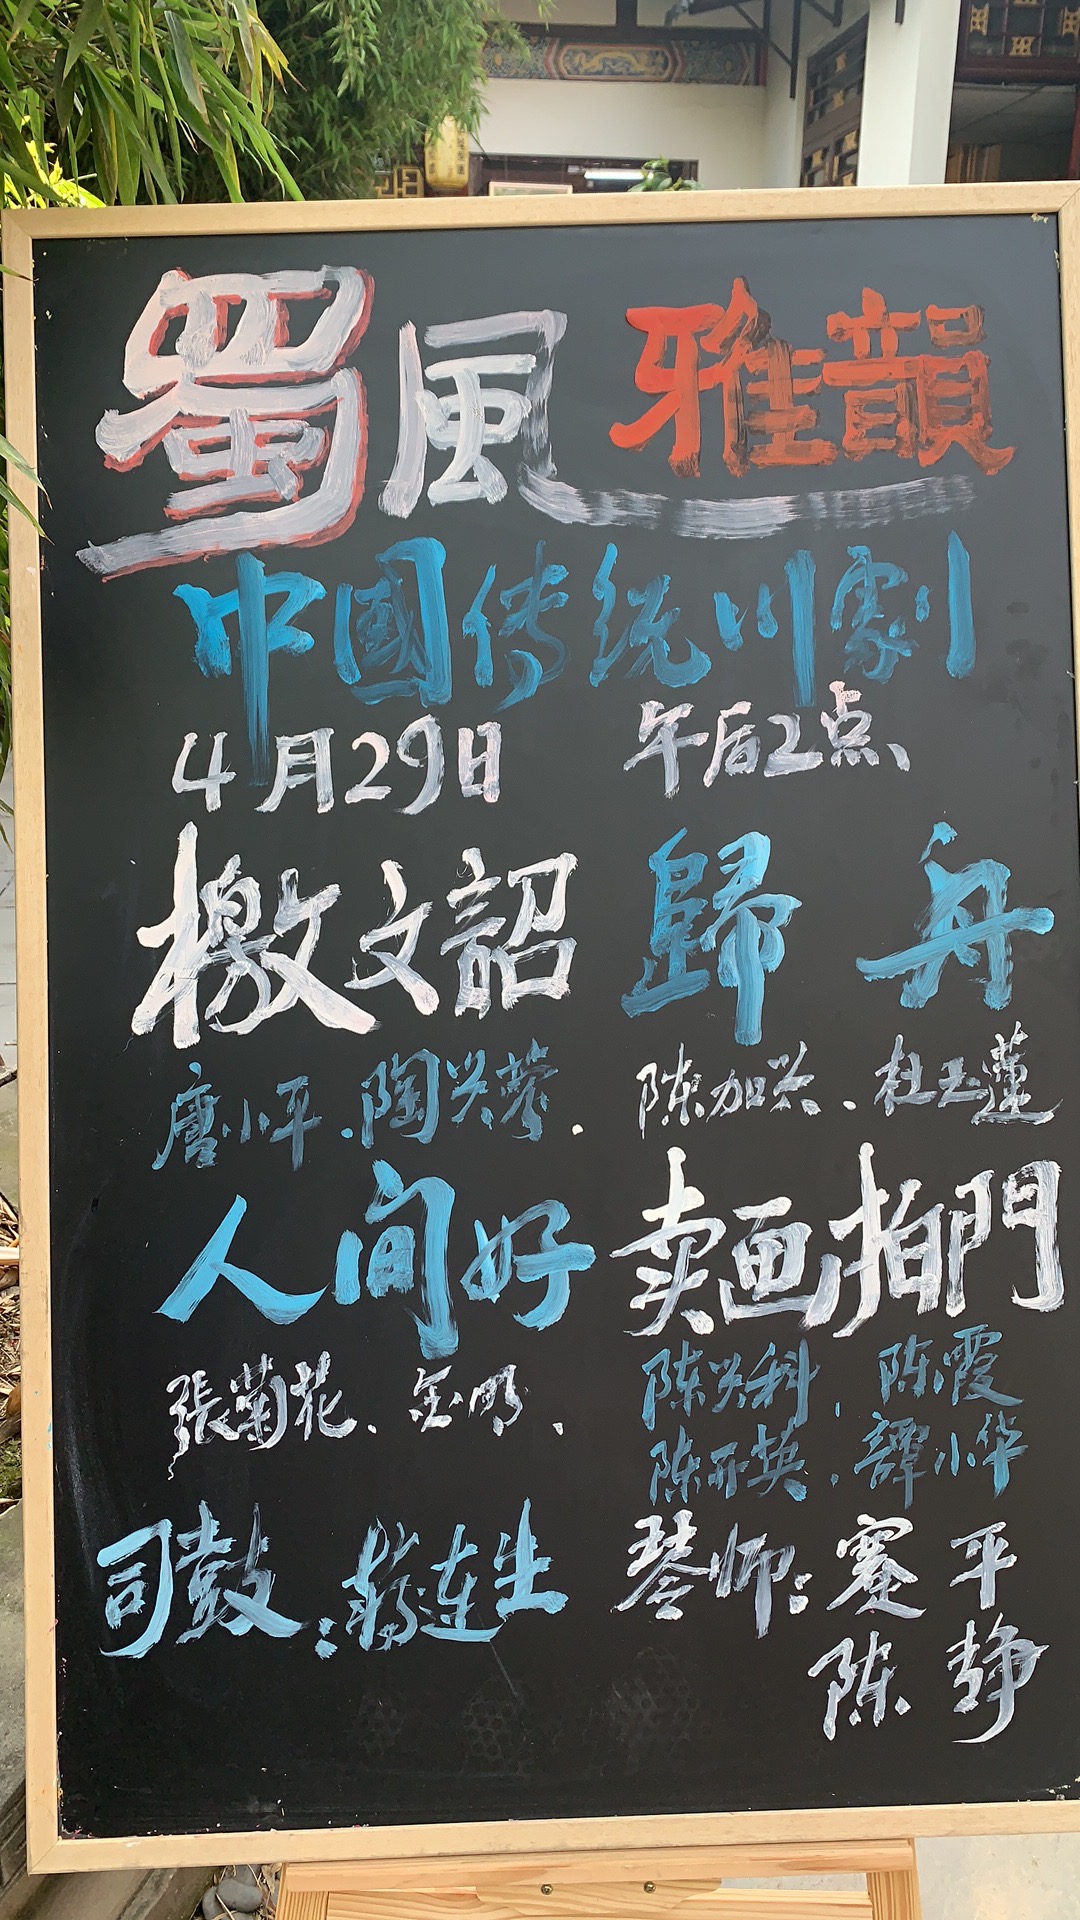 蜀風 雅韻
中國传统川劇
4月29日 午后2点
檄文詔 歸舟
唐小平、陶兴蓉、 陈加兴、杜玉蓮
人间好 卖画拍門
張菊花、金明、 陈兴科、陈霞
陈亦英、譚小华
司鼓：蒋连生 琴师：蹇平
陈静